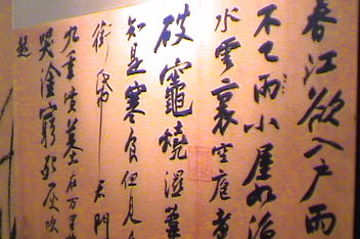 春江欲入戶雨
不已雨小屋如漁
水雲裏空庖煮
破竈燒濕葦
知是寒食但見烏
銜帋君門
九重墳墓在万里
哭塗窮死灰吹
起